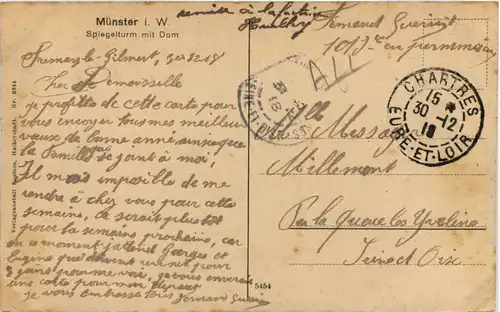 Münster i. W.
Spiegelturm mit Dom
Tremezy le Gilmert, 30.12.18
Chère Demoiselle
je profite de cette carte pour
vous envoyer tous mes meilleurs
vœux de bonne année, ainsi que
la famille se joint à moi !
Il m'ais imposible de me
rendre à chez vous pour cette
semaine, ce serait plustot
pour la semaine prochaine, car
en ce moment j'attend Georges et
Eugène que doivent venir pour
3 jours pour me voir, je vous enverais
une carte pour mon depart
je vous embrasse tous Fernand
remise à la factrice
Fernand
1013e en permission
ALL
CHARTRES
15 *
30 -12
18
EURE-ET-LOIR
Mlle Message
Millemont
Par la Queue les Yveline
Seine et Oise
5454
Nr. 9344